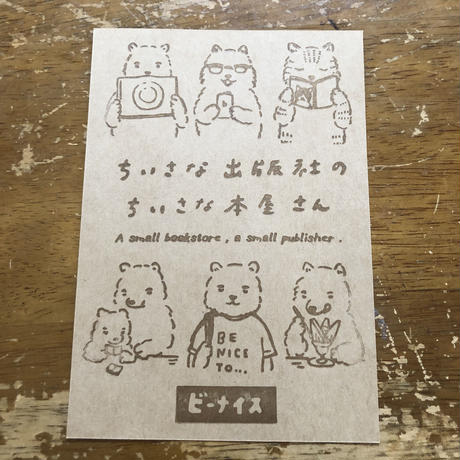 ちいさな出版社の
ちいさな本屋さん
A small bookstore, a small publisher.
BE
NICE
TO...
ビーナイス